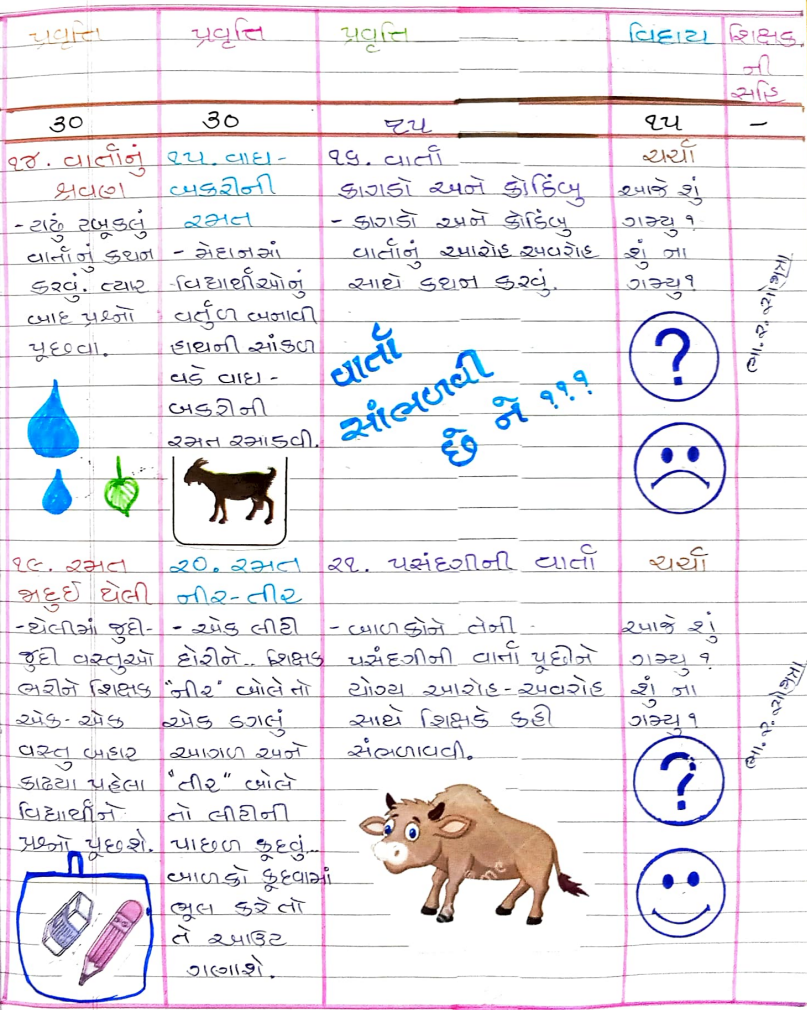 પ્રવૃત્તિ
પ્રવૃત્તિ
પ્રવૃત્તિ
વિદાય
શિક્ષક
ની
સહિ
૩૦
૩૦
૨૫
૧૫
-
૧૪. વાર્તાનું
શ્રવણ
- ટાઢું ટબૂકલું
વાર્તાનું કથન
કરવું. ત્યાર
બાદ પ્રશ્નો
પૂછવા.
૧૫. વાઘ -
બકરીની
રમત
- મેદાનમાં
વિદ્યાર્થીઓનું
વર્તુળ બનાવી
હાથની સાંકળ
વડે વાઘ -
બકરીની
રમત રમાડવી.
૧૬. વાર્તા
કાગડો અને કોઠિંબુ
- કાગડો અને કોઠિંબુ
વાર્તાનું આરોહ અવરોહ
સાથે કથન કરવું.
વાર્તા
સાંભળવી
છે ને ???
ચર્ચા
આજે શું
ગમ્યુ ?
શું ના
ગમ્યુ?
?
૧૯. રમત
જાદુઈ થેલી
- થેલીમાં જુદી-
જુદી વસ્તુઓ
ભરીને શિક્ષક
એક- એક
વસ્તુ બહાર
કાઢયા પહેલા
વિદ્યાર્થીને
પ્રશ્નો પૂછશે.
૨૦. રમત
નીર-તીર
- એક લીટી
દોરીને.. શિક્ષક
"નીર" બોલે તો
એક ડગલું
આગળ અને
"તીર" બોલે
તો લીટીની
પાછળ કૂદવું...
બાળકો કૂદવામાં
ભૂલ કરે તો
તે આઉટ
ગણાશે.
૨૧. પસંદગીની વાર્તા
- બાળકોને તેની
પસંદગીની વાર્તા પૂછીને
યોગ્ય આરોહ-અવરોહ
સાથે શિક્ષકે કહી
સંભળાવવી.
ચર્ચા
આજે શું
ગમ્યુ ?
શું ના
ગમ્યુ?
?